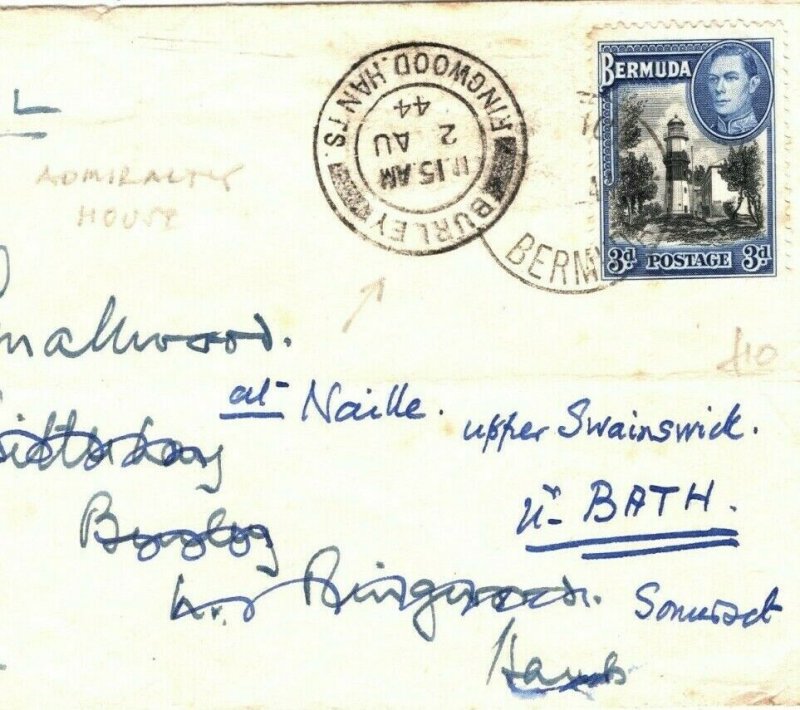 L
BERMUDA
3d POSTAGE 3d
BERM
RINGWOOD.HANTS.
BURLEY
11.15 AM
2 AU
44
ADMIRALTY
HOUSE
£10
mallwood.
at Naille.
upper Swainswick.
Burley
nr BATH.
nr Ringwood.
Somerset
Hants